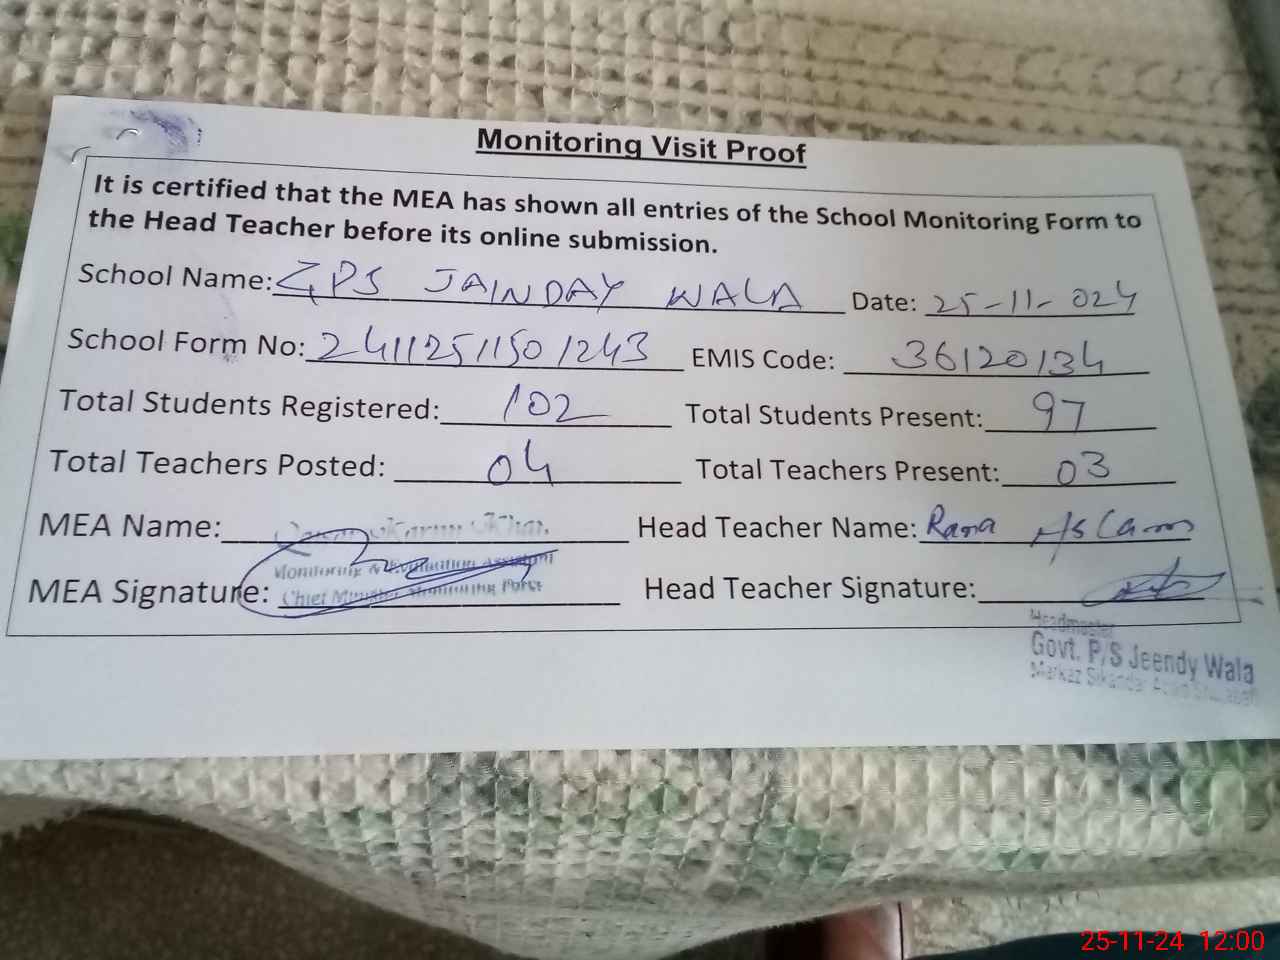 Monitoring Visit Proof
It is certified that the MEA has shown all entries of the School Monitoring Form to
the Head Teacher before its online submission.
School Name: GPS JAINDAY WALA Date: 25-11-024
School Form No: 24112511501243 EMIS Code: 36120134
Total Students Registered: 102 Total Students Present: 97
Total Teachers Posted: 04 Total Teachers Present: 03
MEA Name: Head Teacher Name: Rana Aslam
Monitoring & Evaluation Assistant
MEA Signature: Chief Minister Monitoring Force Head Teacher Signature:
Headmaster
Govt. P/S Jeendy Wala
Markaz
25-11-24 12:00